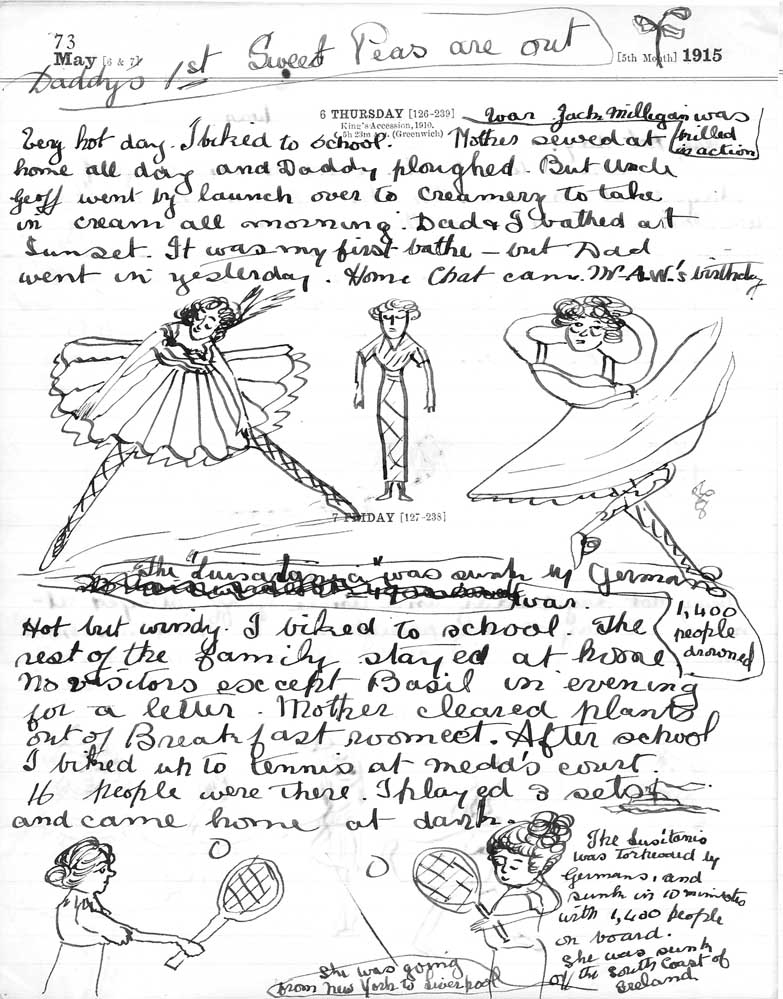 73
May [6 & 7]
[5th Month] 1915
Daddy's 1st Sweet Peas are out
6 THURSDAY [126-239]
King's Accession, 1910.
5h 23m (Greenwich)
War Jack Milligan was
killed
in action
Very hot day. I biked to school. Mother sewed at
home all day and Daddy ploughed. But Uncle
Geoff went by launch over to creamery to take
in cream all morning. Dad & I bathed at
Sunset. It was my first bathe – but Dad
went in yesterday. Home Chat came. Mr A.W.'s birthday
7 FRIDAY [127-238]
The "Lusatania" was sunk by Germans
war.
1,400
people
drowned
Hot but windy. I biked to school. The
rest of the family stayed at home
No visitors except Basil in evening
for a letter. Mother cleared plants
out of Breakfast room. After school
I biked up to tennis at Medd's court.
16 people were there. I played 3 sets
and came home at dark.
The Lusitania
was torpeaded by
Germans, and
sunk in 10 minutes
with 1,400 people
on board.
She was sunk
off the South Coast of
Ireland
She was going
from New York to Liverpool